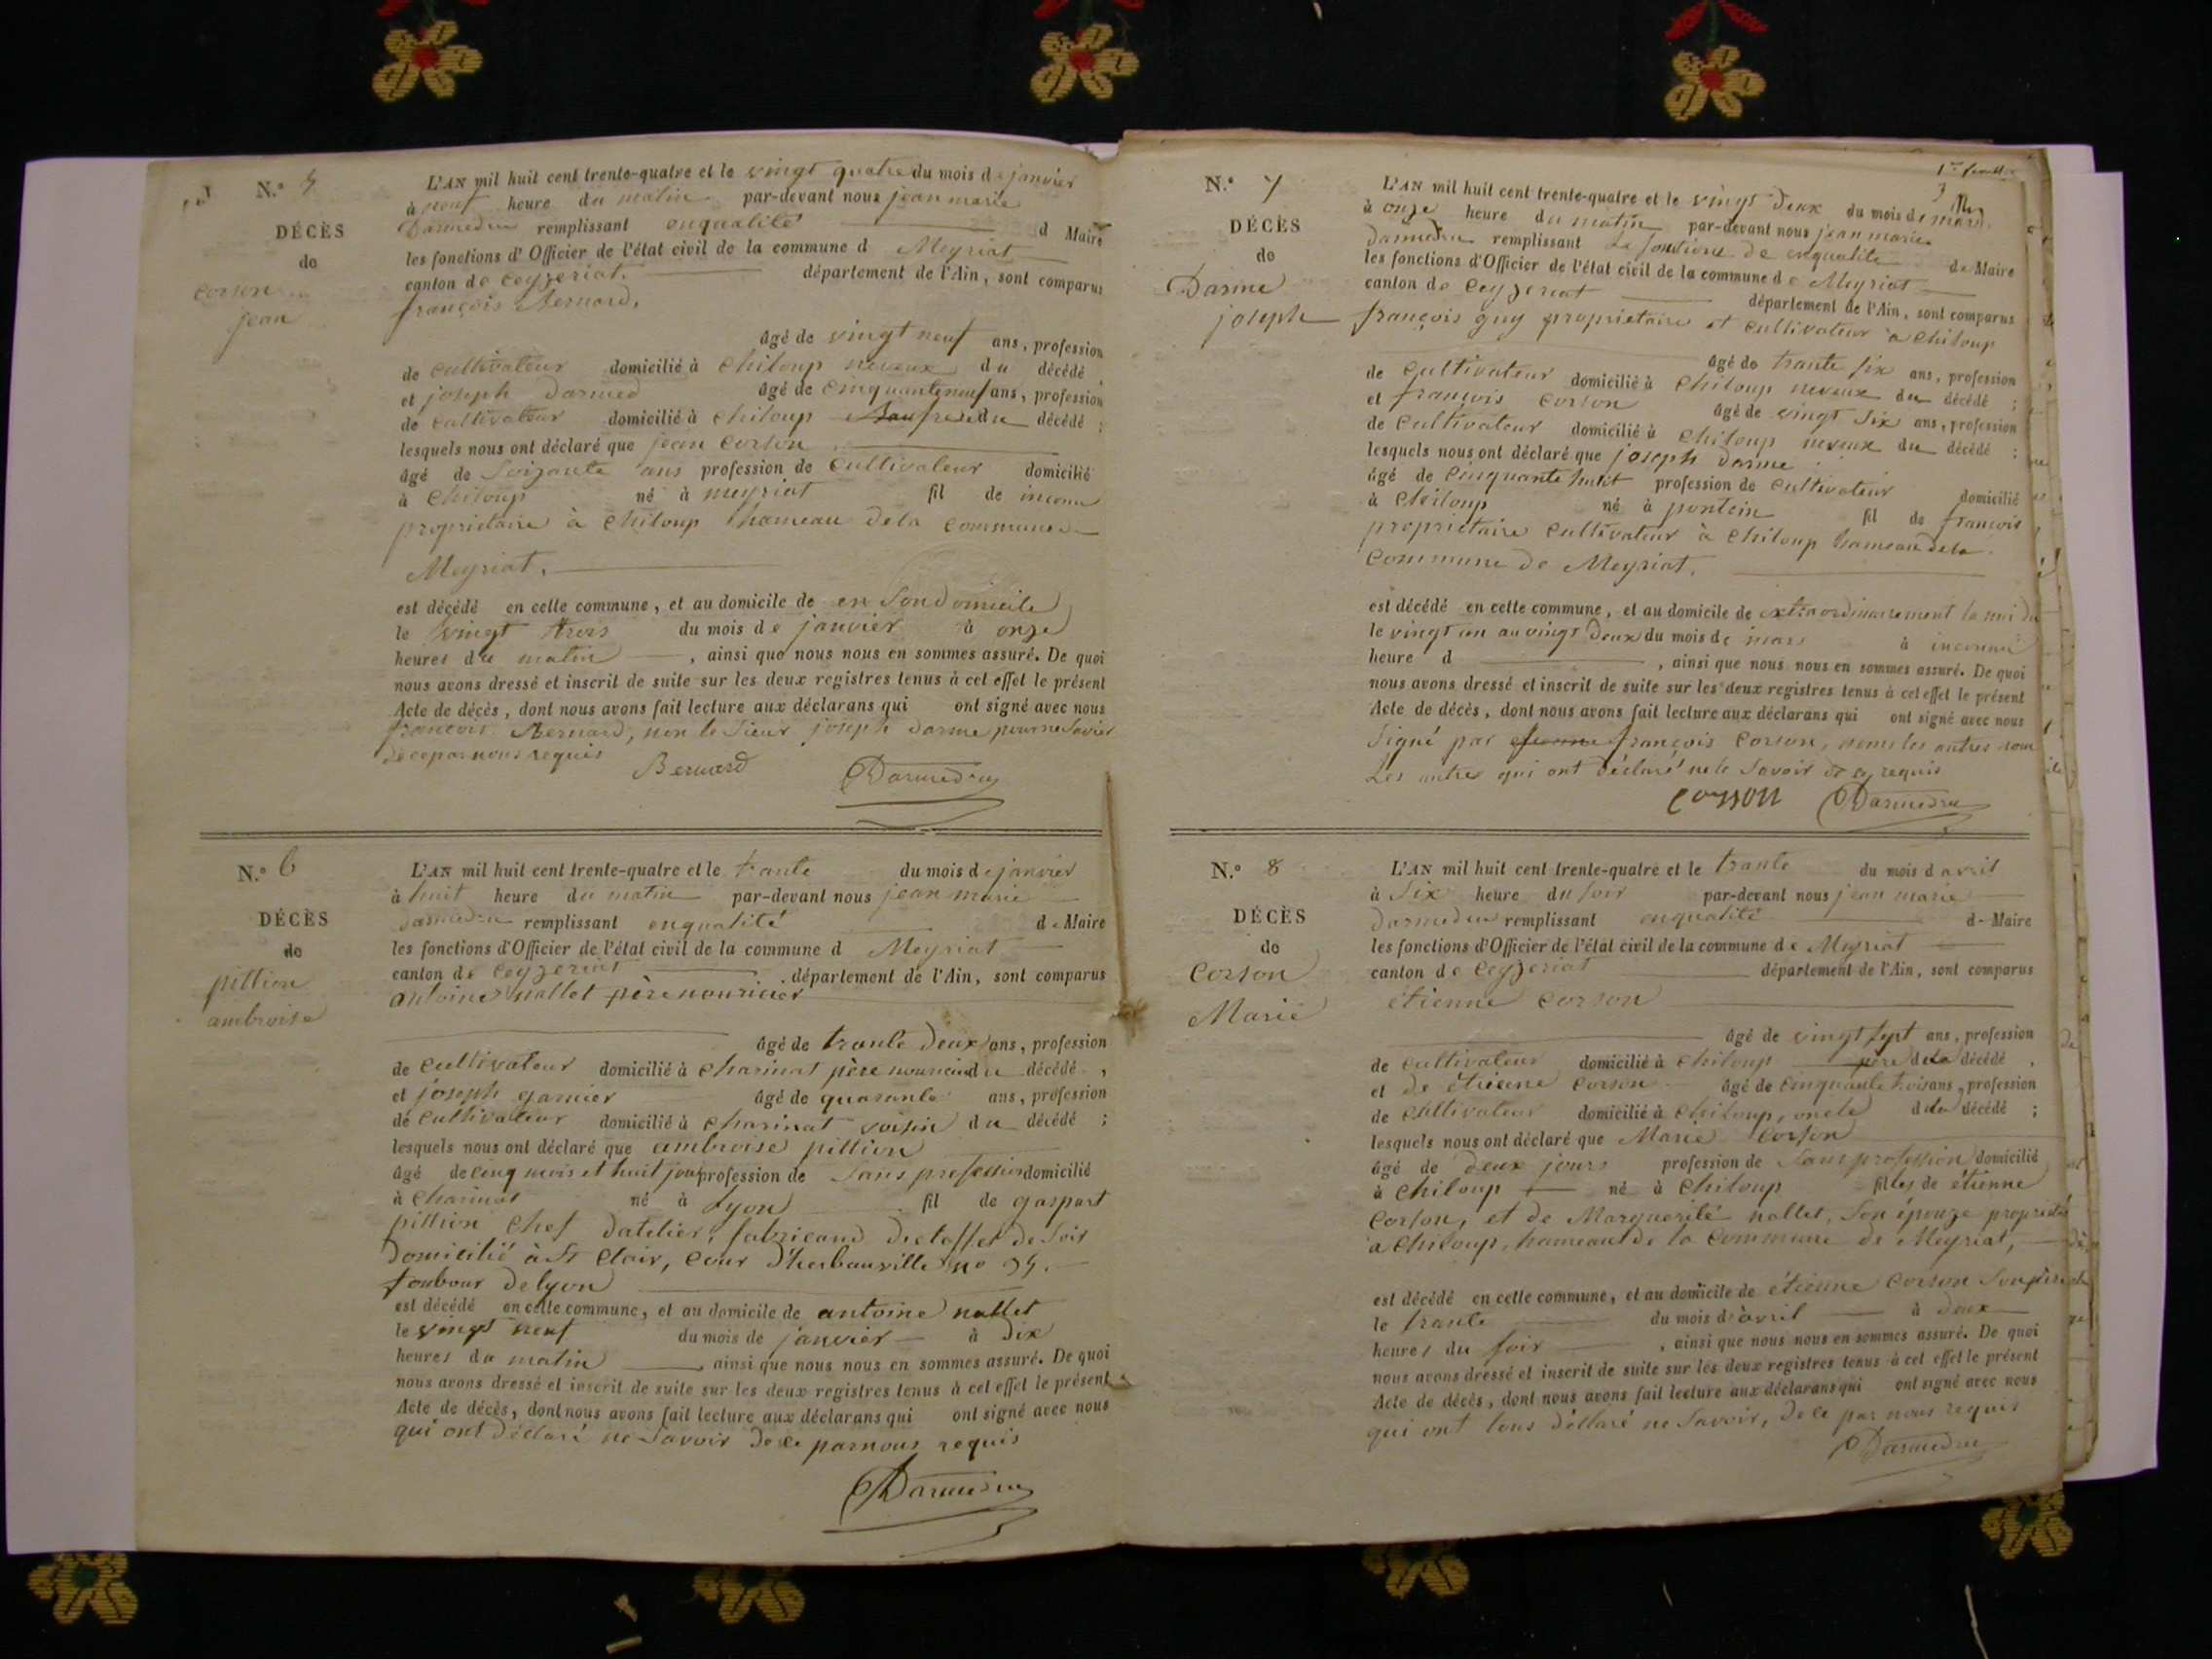 N.o 5
DÉCÈS
de
corson
jean
L'AN mil huit cent trente-quatre et le vingt quatre du mois de janvier
à neuf heure du matin par-devant nous jean marie
Darmedru remplissant enqualité d Maire
les fonctions d'Officier de l'état civil de la commune d Meyriat
canton de ceyzeriat. département de l'Ain, sont comparus
françois Bernard,
âgé de vingt neuf ans, profession
de cultivateur domicilié à chiloup neveux du décédé,
et joseph darmed âgé de cinquanteneuf ans, profession
de cultivateur domicilié à chiloup du décédé ;
lesquels nous ont déclaré que jean corson
âgé de soizante ans profession de cultivateur domicilié
à chiloup né à meyriat fil de inconu
proprietaire à chiloup hameau dela commune de
Meyriat.
est décédé en cette commune, et au domicile de en son domicile
le vingt trois du mois de janvier à onze
heures du matin, ainsi que nous nous en sommes assuré. De quoi
nous avons dressé et inscrit de suite sur les deux registres tenus à cet effet le présent
Acte de décès, dont nous avons fait lecture aux déclarans qui ont signé avec nous
francois Bernard, non le sieur joseph darme pour ne savoir
de ce par nous requis
Bernard Darmedru
N.o 6
DÉCÈS
de
pittion
ambroise
L'AN mil huit cent trente-quatre et le trante du mois de janvier
à huit heure du matin par-devant nous jean marie
darmedru remplissant enqualité de Maire
les fonctions d'Officier de l'état civil de la commune d Meyriat
canton de ceyzeriat département de l'Ain, sont comparus
antoine nallet père nouricier
âgé de trante deux ans, profession
de cultivateur domicilié à charinat père nouricier du décédé,
et joseph garnier âgé de quarante ans, profession
de cultivateur domicilié à charinat voisin du décédé ;
lesquels nous ont déclaré que ambroise pittion
âgé de cinq mois et huit jour profession de sans profession domicilié
à charinat né à Lyon fil de gaspart
pittion chef datelier, fabricand detoffet de soir
domicilié à St clair, cour d'herbauville no
foubour delyon
est décédé en cette commune, et au domicile de antoine nallet
le vingt neuf du mois de janvier à dix
heures du matin ainsi que nous nous en sommes assuré. De quoi
nous avons dressé et inscrit de suite sur les deux registres tenus à cet effet le présent
Acte de décès, dont nous avons fait lecture aux déclarans qui ont signé avec nous
qui ont déclaré ne savoir de ce parnous requis
Darmedru
N.o 7
DÉCÈS
de
Darme
joseph
L'AN mil huit cent trente-quatre et le vingt deux du mois de mars
à onze heure du matin par-devant nous jean marie
darmedru remplissant La fonctions de enqualité de Maire
les fonctions d'Officier de l'état civil de la commune de Meyriat
canton de ceyzeriat département de l'Ain, sont comparus
françois guy proprietaire et cultivateur à chiloup
âgé de trante six ans, profession
de cultivateur domicilié à chiloup neveux du décédé ;
et françois corson âgé de vingt six ans, profession
de cultivateur domicilié à chiloup neveux du décédé ;
lesquels nous ont déclaré que joseph darme
âgé de cinquante huit profession de cultivateur domicilié
à chiloup né à pontein fil de francois
proprietaire cultivateur à chiloup hameau dela
commune de Meyriat.
est décédé en cette commune, et au domicile de extraordinairement la nui du
le vingt un au vingt deux du mois de mars à inconnu
heure d, ainsi que nous nous en sommes assuré. De quoi
nous avons dressé et inscrit de suite sur les deux registres tenus à cet effet le présent
Acte de décès, dont nous avons fait lecture aux déclarans qui ont signé avec nous
signé par françois corson, les autres
Les autres qui ont déclaré ne le savoir de ce requis
corson Darmedru
N.o 8
DÉCÈS
de
Corson
Marie
L'AN mil huit cent trente-quatre et le trante du mois d avril
à six heure du soir par-devant nous jean marie
darmedru remplissant enqualité de Maire
les fonctions d'Officier de l'état civil de la commune de Meyriat
canton de ceyzeriat département de l'Ain, sont comparus
étienne corson
âgé de vingt sept ans, profession
de cultivateur domicilié à chiloup père dela décédé,
et de étienne corson âgé de cinquante trois ans, profession
de cultivateur domicilié à chiloup, oncle dela décédé ;
lesquels nous ont déclaré que Marie corson
âgé de deux jours profession de sans profession domicilié
à chiloup né à chiloup filles de étienne
corson, et de Marguerite nallet, son épouze proprietes
a chiloup, hameaut de la commune de Meyriat,
est décédé en cette commune, et au domicile de étienne corson son père
le trante du mois d'avril à deux
heures du soir, ainsi que nous nous en sommes assuré. De quoi
nous avons dressé et inscrit de suite sur les deux registres tenus à cet effet le présent
Acte de décès, dont nous avons fait lecture aux déclarans qui ont signé avec nous
qui ont tous déllaré ne savoir, de ce par nous requis
Darmedru